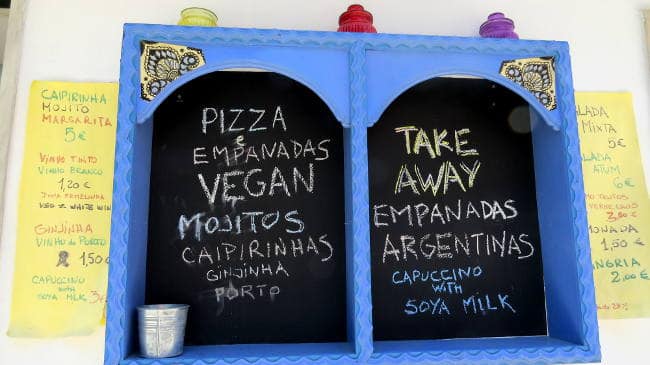 CAIPIRINHA
MOJITO
MARGARITA
5€
VINHO TINTO
VINHO BRANCO
1,20 €
RED & WHITE WIN
GINJINHA
VINHO do PORTO
1,50
CAPUCCINO
WITH
SOYA MILK
PIZZA
E
EMPANADAS
VEGAN
MOJITOS
CAIPIRINHAS
GINJINHA
PORTO
TAKE
AWAY
EMPANADAS
ARGENTINAS
CAPUCCINO
WITH
SOYA MILK
LADA
MIXTA
5€
LADA
ATUM
6€
MO FRUTOS
VERMELHOS
2,00€
MONADA
1,50€
NGRIA
2,00€